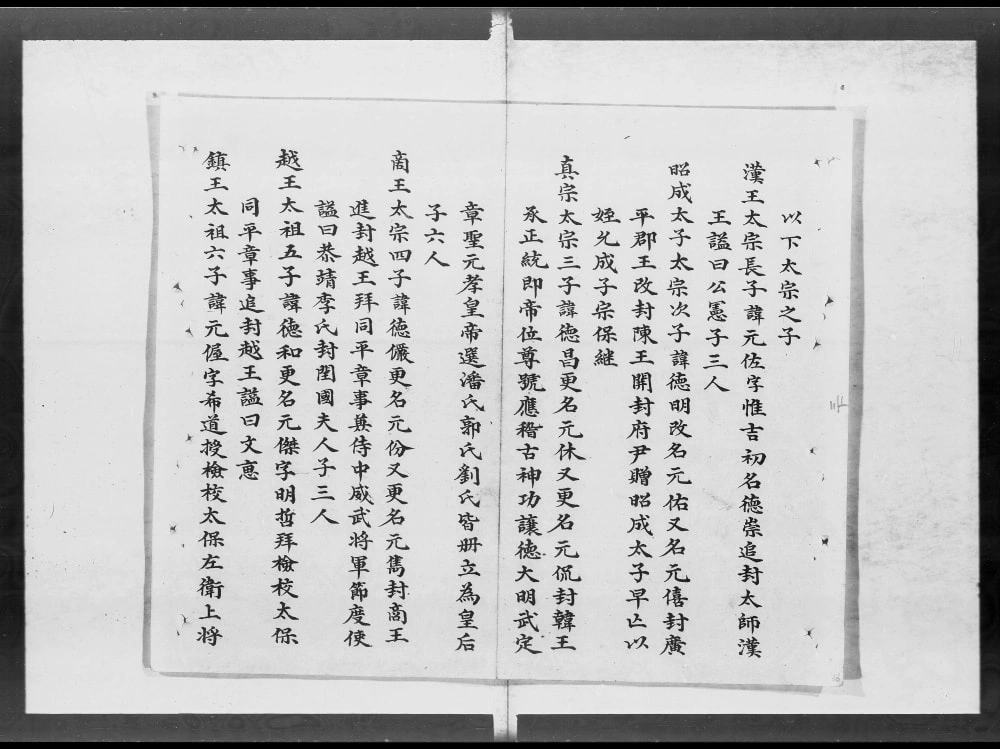 以下太宗之子
漢王太宗長子諱元佐字惟吉初名德崇追封太師漢
王諡曰公憲子三人
昭成太子太宗次子諱德明改名元佑又名元僖封廣
平郡王改封陳王開封府尹贈昭成太子早亡以
姪允成子宗保繼
真宗太宗三子諱德昌更名元休又更名元侃封韓王
承正統即帝位尊號應稽古神功讓德大明武定
章聖元孝皇帝選潘氏郭氏劉氏皆册立為皇后
子六人
商王太宗四子諱德儼更名元份又更名元雋封商王
進封越王拜同平章事兼侍中威武將軍節度使
謚曰恭靖李氏封閏國夫人子三人
越王太祖五子諱德和更名元傑字明哲拜檢校太保
同平章事追封越王謚曰文惠
鎮王太祖六子諱元偓字希道授檢校太保左衛上将